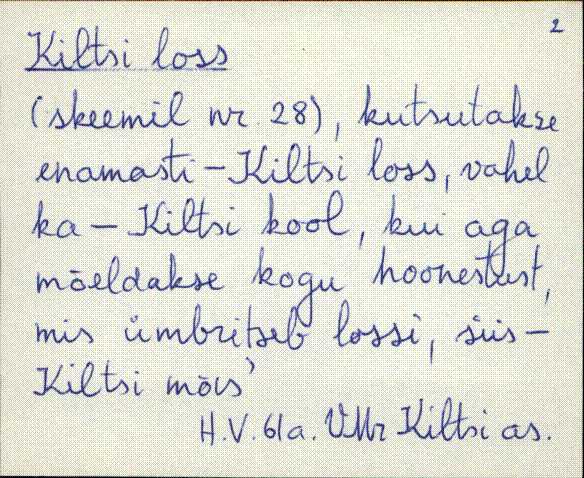 2
Kiltsi loss
(skeemil nr. 28), kutsutakse
enamasti – Kiltsi loss, vahel
ka – Kiltsi kool, kui aga
mõeldakse kogu hoonestust,
mis ümbritseb lossi, siis –
Kiltsi mõis'
H.V. 61a. VMr Kiltsi as.